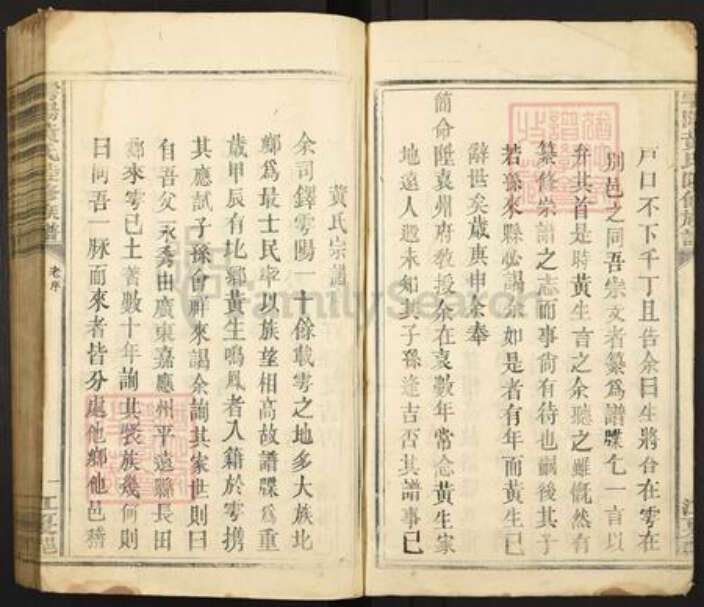 黃氏宗譜
余司鐸雩陽一十餘載雩之地多大族北
鄉爲最士民率以族望相高故譜牒爲重
歲甲辰有北鄉黃生鳴鳳者入籍於雩攜
其應試子孫會祥來謁余詢其家世則曰
自吾父永秀由廣東嘉應州平遠縣長田
鄉來雩已土著數十年詢其裝族幾何則
曰同吾一脈而來者皆分處他鄉他邑稽
黃氏 修族譜
老序
一
江夏
戶口不下千丁且告余曰生將合在雩在
別邑之同吾崇文者纂爲譜牒乞一言以
弁其首是時黃生言之余聽之雖慨然有
纂修宗譜之志而事尙有待也嗣後其子
若孫來縣必謁余如是者有年而黃生已
辭世矣歲庚申余奉
簡命陞袁州府敎授余在袁數年常念黃生家
地遠人遐未知其子孫逢吉否其譜事已
黃氏 修族譜